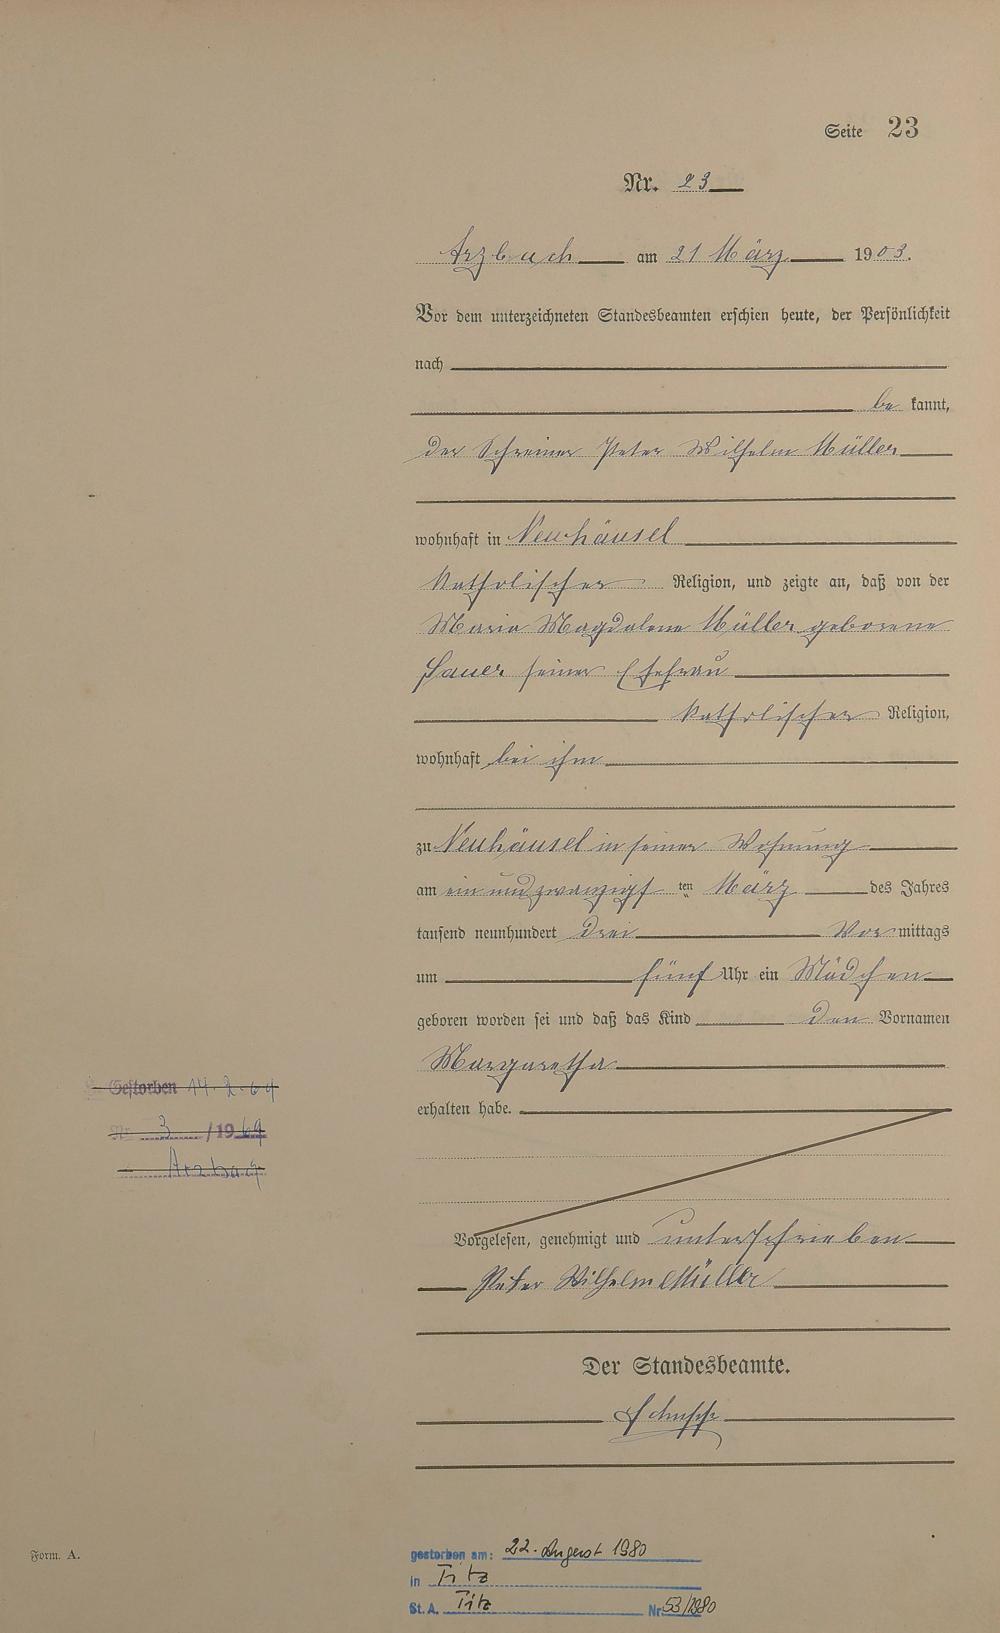 Seite 23
Nr. 23
Arzbach am 21 März 1903.
Vor dem unterzeichneten Standesbeamten erschien heute, der Persönlichkeit
nach
be kannt,
der Schreiner Peter Wilhelm Müller
wohnhaft in Neuhäusel
katholischer Religion, und zeigte an, daß von der
Maria Magdalena Müller geborene
Sauer seiner Ehefrau
katholischer Religion,
wohnhaft bei ihm
zu Neuhäusel in seiner Wohnung
am ein und zwanzigsten März des Jahres
tausend neunhundert drei Vor mittags
um fünf Uhr ein Mädchen
geboren worden sei und daß das Kind den Vornamen
Margaretha
Gestorben 14.2.64
erhalten habe.
Nr. 3 /1969
Arzbach
Vorgelesen, genehmigt und unterschrieben
Peter Wilhelm Müller
Der Standesbeamte.
Form. A.
gestorben am: 22. August 1980
in Titz
St. A. Titz Nr. 53/1980